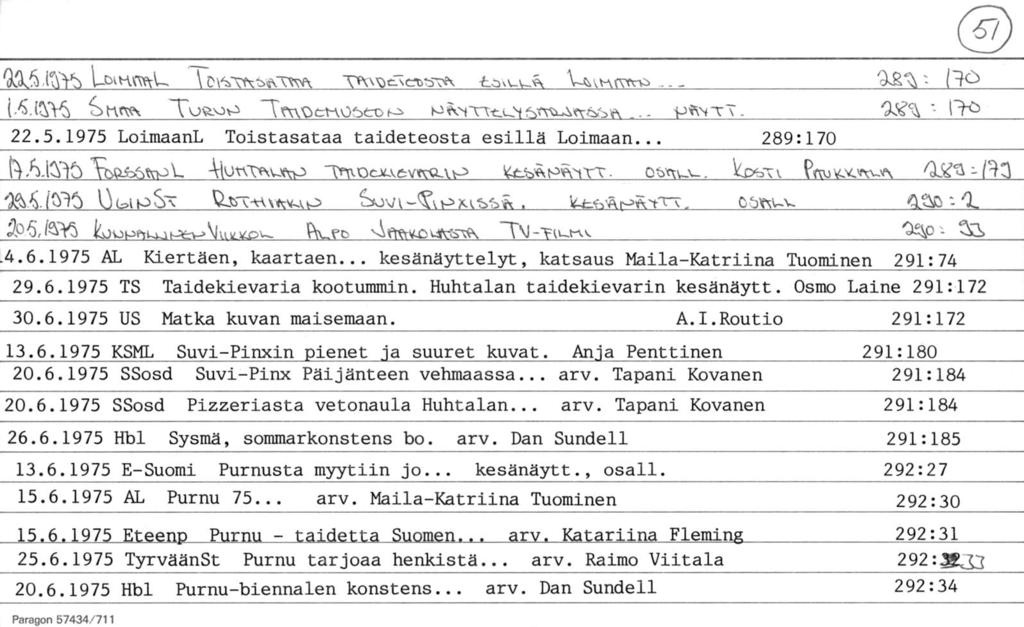 51
22.5.1975 LOIMAAL TOISTASATAA TAIDETEOSTA ESILLÄ LOIMAAN... 289:170
1.5.1975 SMAA TURUN TAIDEMUSEON NÄYTTELYSTADJASSA... NÄYTT. 289:170
22.5.1975 LoimaanL Toistasataa taideteosta esillä Loimaan... 289:170
17.5.1975 FORSSANL HUHTALAN TAIDEKIEVARIN KESÄNÄYTT. OSALL. KOSTI PAUKKALA 289:179
29.5.1975 UGINST ROTHIAKIN SUVI-PINXISSÄ. KESÄNÄYTT. OSALL 290:2
20.5.1975 KUNNALLINENVIIKKOL ALPO JAAKOLASTA TV-FILMI 290:93
4.6.1975 AL Kiertäen, kaartaen... kesänäyttelyt, katsaus Maila-Katriina Tuominen 291:74
29.6.1975 TS Taidekievaria kootummin. Huhtalan taidekievarin kesänäytt. Osmo Laine 291:172
30.6.1975 US Matka kuvan maisemaan. A.I.Routio 291:172
13.6.1975 KSML Suvi-Pinxin pienet ja suuret kuvat. Anja Penttinen 291:180
20.6.1975 SSosd Suvi-Pinx Päijänteen vehmaassa... arv. Tapani Kovanen 291:184
20.6.1975 SSosd Pizzeriasta vetonaula Huhtalan... arv. Tapani Kovanen 291:184
26.6.1975 Hbl Sysmä, sommarkonstens bo. arv. Dan Sundell 291:185
13.6.1975 E-Suomi Purnusta myytiin jo... kesänäytt., osall. 292:27
15.6.1975 AL Purnu 75... arv. Maila-Katriina Tuominen 292:30
15.6.1975 Eteenp Purnu - taidetta Suomen... arv. Katariina Fleming 292:31
25.6.1975 TyrväänSt Purnu tarjoaa henkistä... arv. Raimo Viitala 292:33
20.6.1975 Hbl Purnu-biennalen konstens... arv. Dan Sundell 292:34
Paragon 57434/711